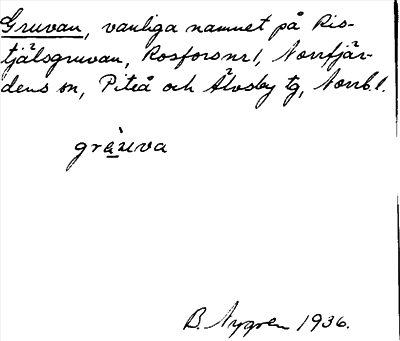 Gruvan, vanliga namnet på Ris-
tjälsgruvan, Rosfors nr 1, Norrfjär-
dens sn, Piteå och Älvsby tg, Norrb. l.
B. Nygren 1936.